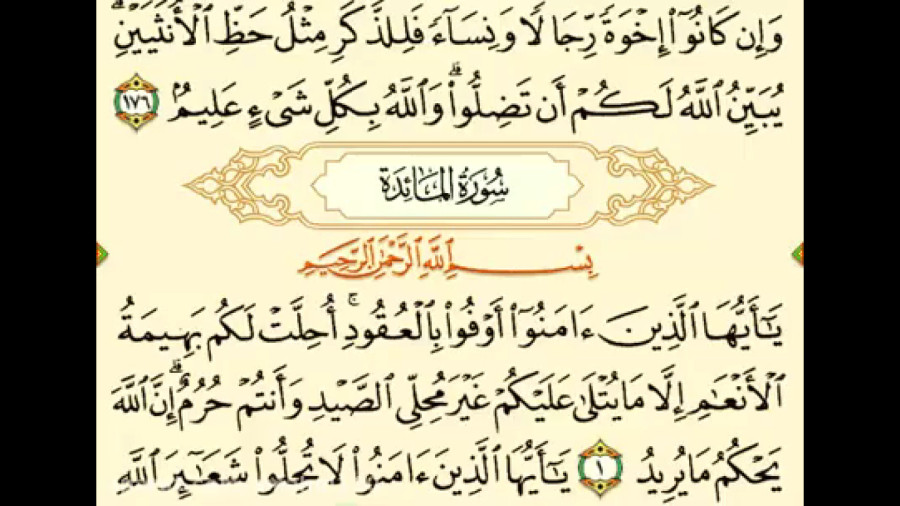 وَإِن كَانُوٓا۟ إِخْوَةً رِّجَالًا وَنِسَآءً فَلِلذَّكَرِ مِثْلُ حَظِّ ٱلْأُنثَيَيْنِ ۗ
يُبَيِّنُ ٱللَّهُ لَكُمْ أَن تَضِلُّوا۟ ۗ وَٱللَّهُ بِكُلِّ شَىْءٍ عَلِيمٌۢ ١٧٦
سُورَةُ المَائِدَةِ
بِسْمِ ٱللَّهِ ٱلرَّحْمَٰنِ ٱلرَّحِيمِ
يَٰٓأَيُّهَا ٱلَّذِينَ ءَامَنُوٓا۟ أَوْفُوا۟ بِٱلْعُقُودِ ۚ أُحِلَّتْ لَكُم بَهِيمَةُ
ٱلْأَنْعَٰمِ إِلَّا مَا يُتْلَىٰ عَلَيْكُمْ غَيْرَ مُحِلِّى ٱلصَّيْدِ وَأَنتُمْ حُرُمٌ ۗ إِنَّ ٱللَّهَ
يَحْكُمُ مَا يُرِيدُ ١ يَٰٓأَيُّهَا ٱلَّذِينَ ءَامَنُوا۟ لَا تُحِلُّوا۟ شَعَٰٓئِرَ ٱللَّهِ